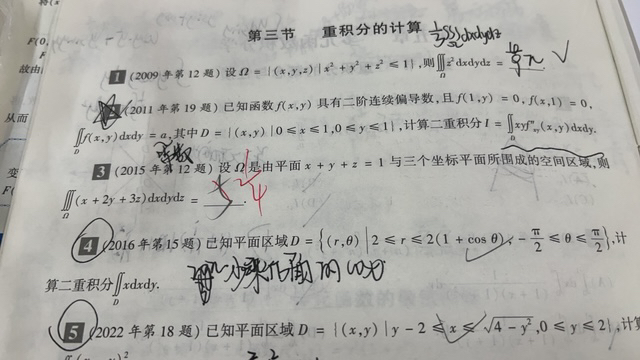 第三节 重积分的计算
1 (2009年第12题) 设 Ω = {(x,y,z) | x² + y² + z² ≤ 1}, 则 ∭_Ω z² dxdydz = ____.
2 (2011年第19题) 已知函数 f(x,y) 具有二阶连续偏导数, 且 f(1,y) = 0, f(x,1) = 0,
∬_D f(x,y)dxdy = a, 其中 D = {(x,y) | 0 ≤ x ≤ 1, 0 ≤ y ≤ 1}, 计算二重积分 I = ∬_D xyf″_xy(x,y)dxdy.
3 (2015年第12题) 设 Ω 是由平面 x + y + z = 1 与三个坐标平面所围成的空间区域, 则
∭_Ω (x + 2y + 3z)dxdydz = ____. 1/4
4 (2016年第15题) 已知平面区域 D = {(r,θ) | 2 ≤ r ≤ 2(1 + cos θ), -π/2 ≤ θ ≤ π/2}, 计
算二重积分 ∬_D xdxdy.
5 (2022年第18题) 已知平面区域 D = {(x,y) | y - 2 ≤ x ≤ √(4 - y²), 0 ≤ y ≤ 2}, 计算